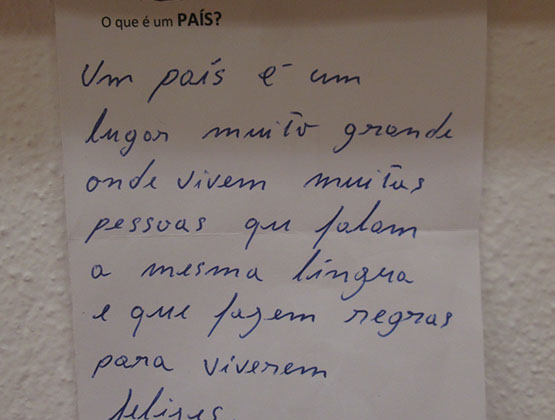 O que é um PAÍS?
Um país é um
lugar muito grande
onde vivem muitas
pessoas qu falam
a mesma língua
e que fazem regras
para viverem
felizes.